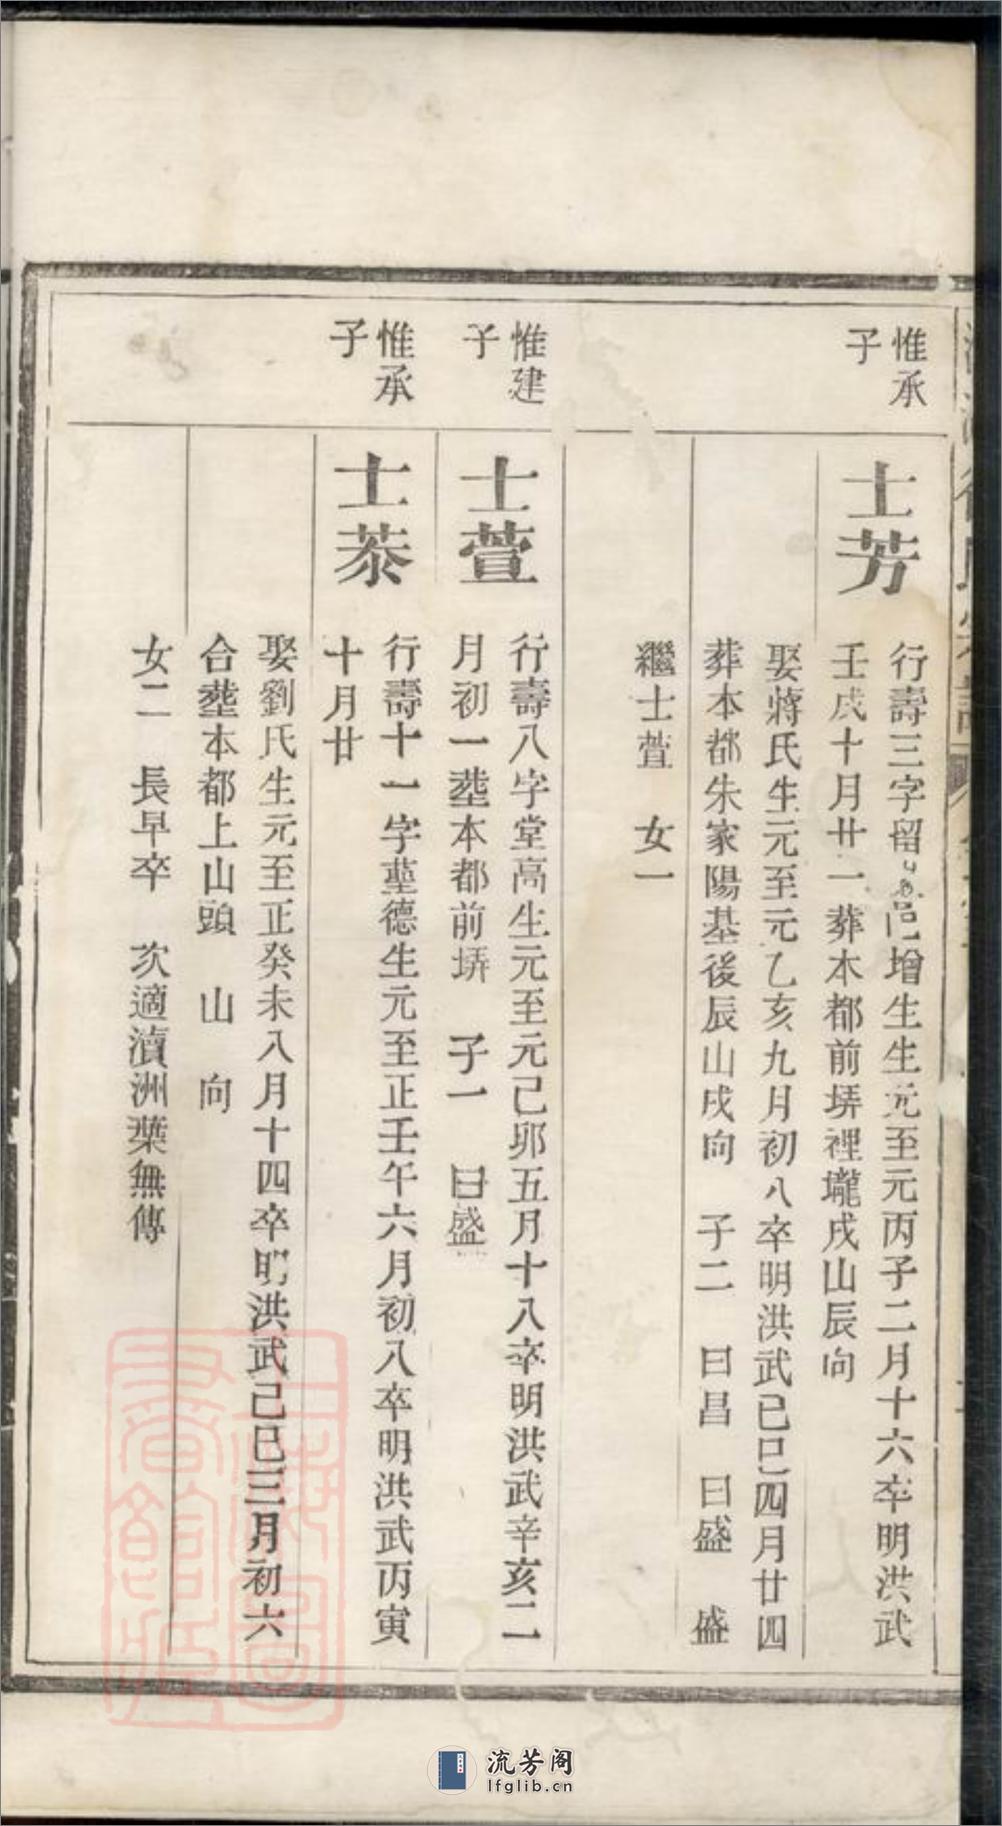 惟承
子
士芳
行壽三字留邑增生生元至元丙子二月十六卒明洪武
壬戌十月廿一葬本都前塝裡壠戌山辰向
娶蔣氏生元至元乙亥九月初八卒明洪武己巳四月廿四
葬本都朱家陽基後辰山戌向 子二 曰昌 曰盛 盛
繼士萱 女一
惟建
子
士萱
行壽八字堂高生元至元己卯五月十八卒明洪武辛亥二
月初一塟本都前塝 子一 曰盛
惟承
子
士菾
行壽十一字堇德生元至正壬午六月初八卒明洪武丙寅
十月廿
娶劉氏生元至正癸未八月十四卒明洪武己巳三月初六
合塟本都上山頭 山 向
女二 長早卒 次適瀆洲葉無傳
流芳阁
lfglib.cn